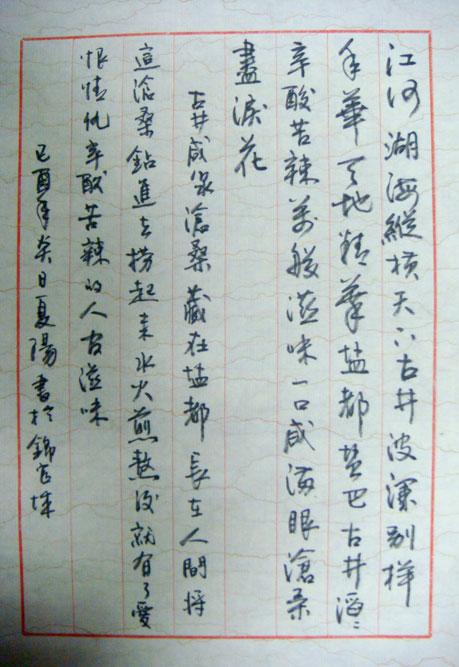 江河湖海縱横天下古井波深别样
年華天地精華盐都盐巴古井滔〻
辛酸苦辣萬般滋味一口咸海眼滄桑
盡淚花
古井咸泉滄桑藏在盐都長在人間将
這滄桑鉆進去捞起来水火煎熬後就有了愛
恨情仇辛酸苦辣的人滋味
己酉年炎日夏陽書於錦官城